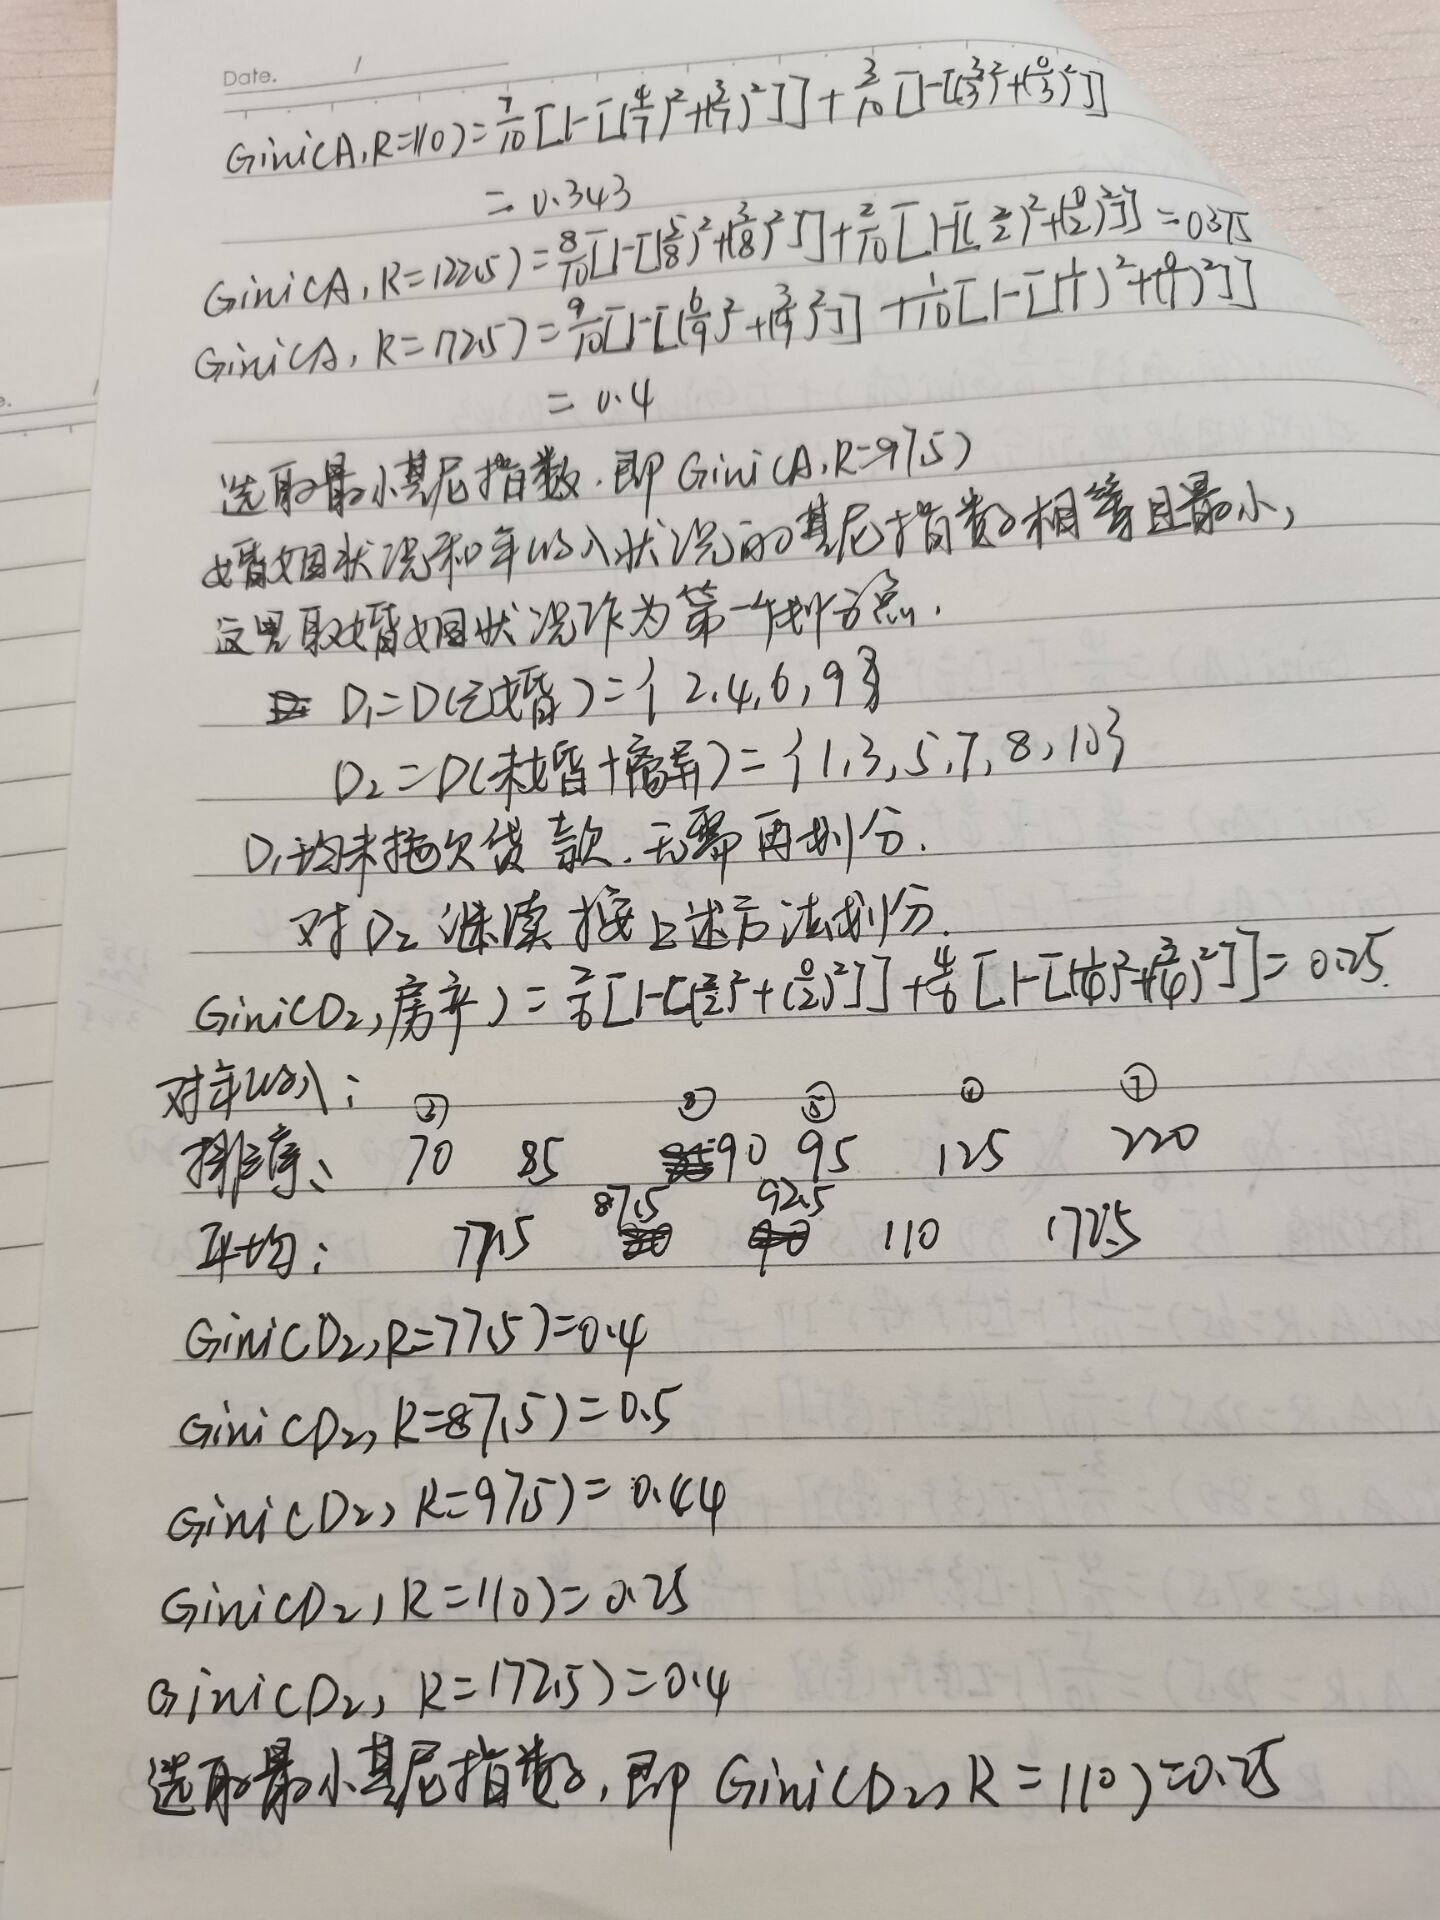 Date. /
Gini(A,R=110)=7/10[1-[(4/7)²+(3/7)²]]+3/10[1-[(3/3)²+(0/3)²]]
=0.343
Gini(A,R=122.5)=8/10[1-[(5/8)²+(3/8)²]]+2/10[1-[(2/2)²+(0/2)²]]=0.375
Gini(A,R=172.5)=9/10[1-[(6/9)²+(3/9)²]]+1/10[1-[(1/1)²+(0/1)²]]
=0.4
选取最小基尼指数,即Gini(A,R=97.5)
婚姻状况和年收入状况的基尼指数相等且最小,
这里取婚姻状况作为第一个划分点.
D₁=D(已婚)={2,4,6,9}
D₂=D(未婚+离异)={1,3,5,7,8,10}
D₁均未拖欠贷款.无需再划分.
对D₂继续按上述方法划分.
Gini(D₂,房产)=2/6[1-[(2/2)²+(0/2)²]]+4/6[1-[(1/4)²+(3/4)²]]=0.25.
对年收入:
③ ⑧ ⑤ ① ⑦
排序: 70 85 90 95 125 220
87.5 92.5
平均: 77.5 110 172.5
Gini(D₂,R=77.5)=0.4
Gini(D₂,R=87.5)=0.5
Gini(D₂,R=97.5)=0.44
Gini(D₂,R=110)=0.25
Gini(D₂,R=172.5)=0.4
选取最小基尼指数,即Gini(D₂,R=110)=0.25